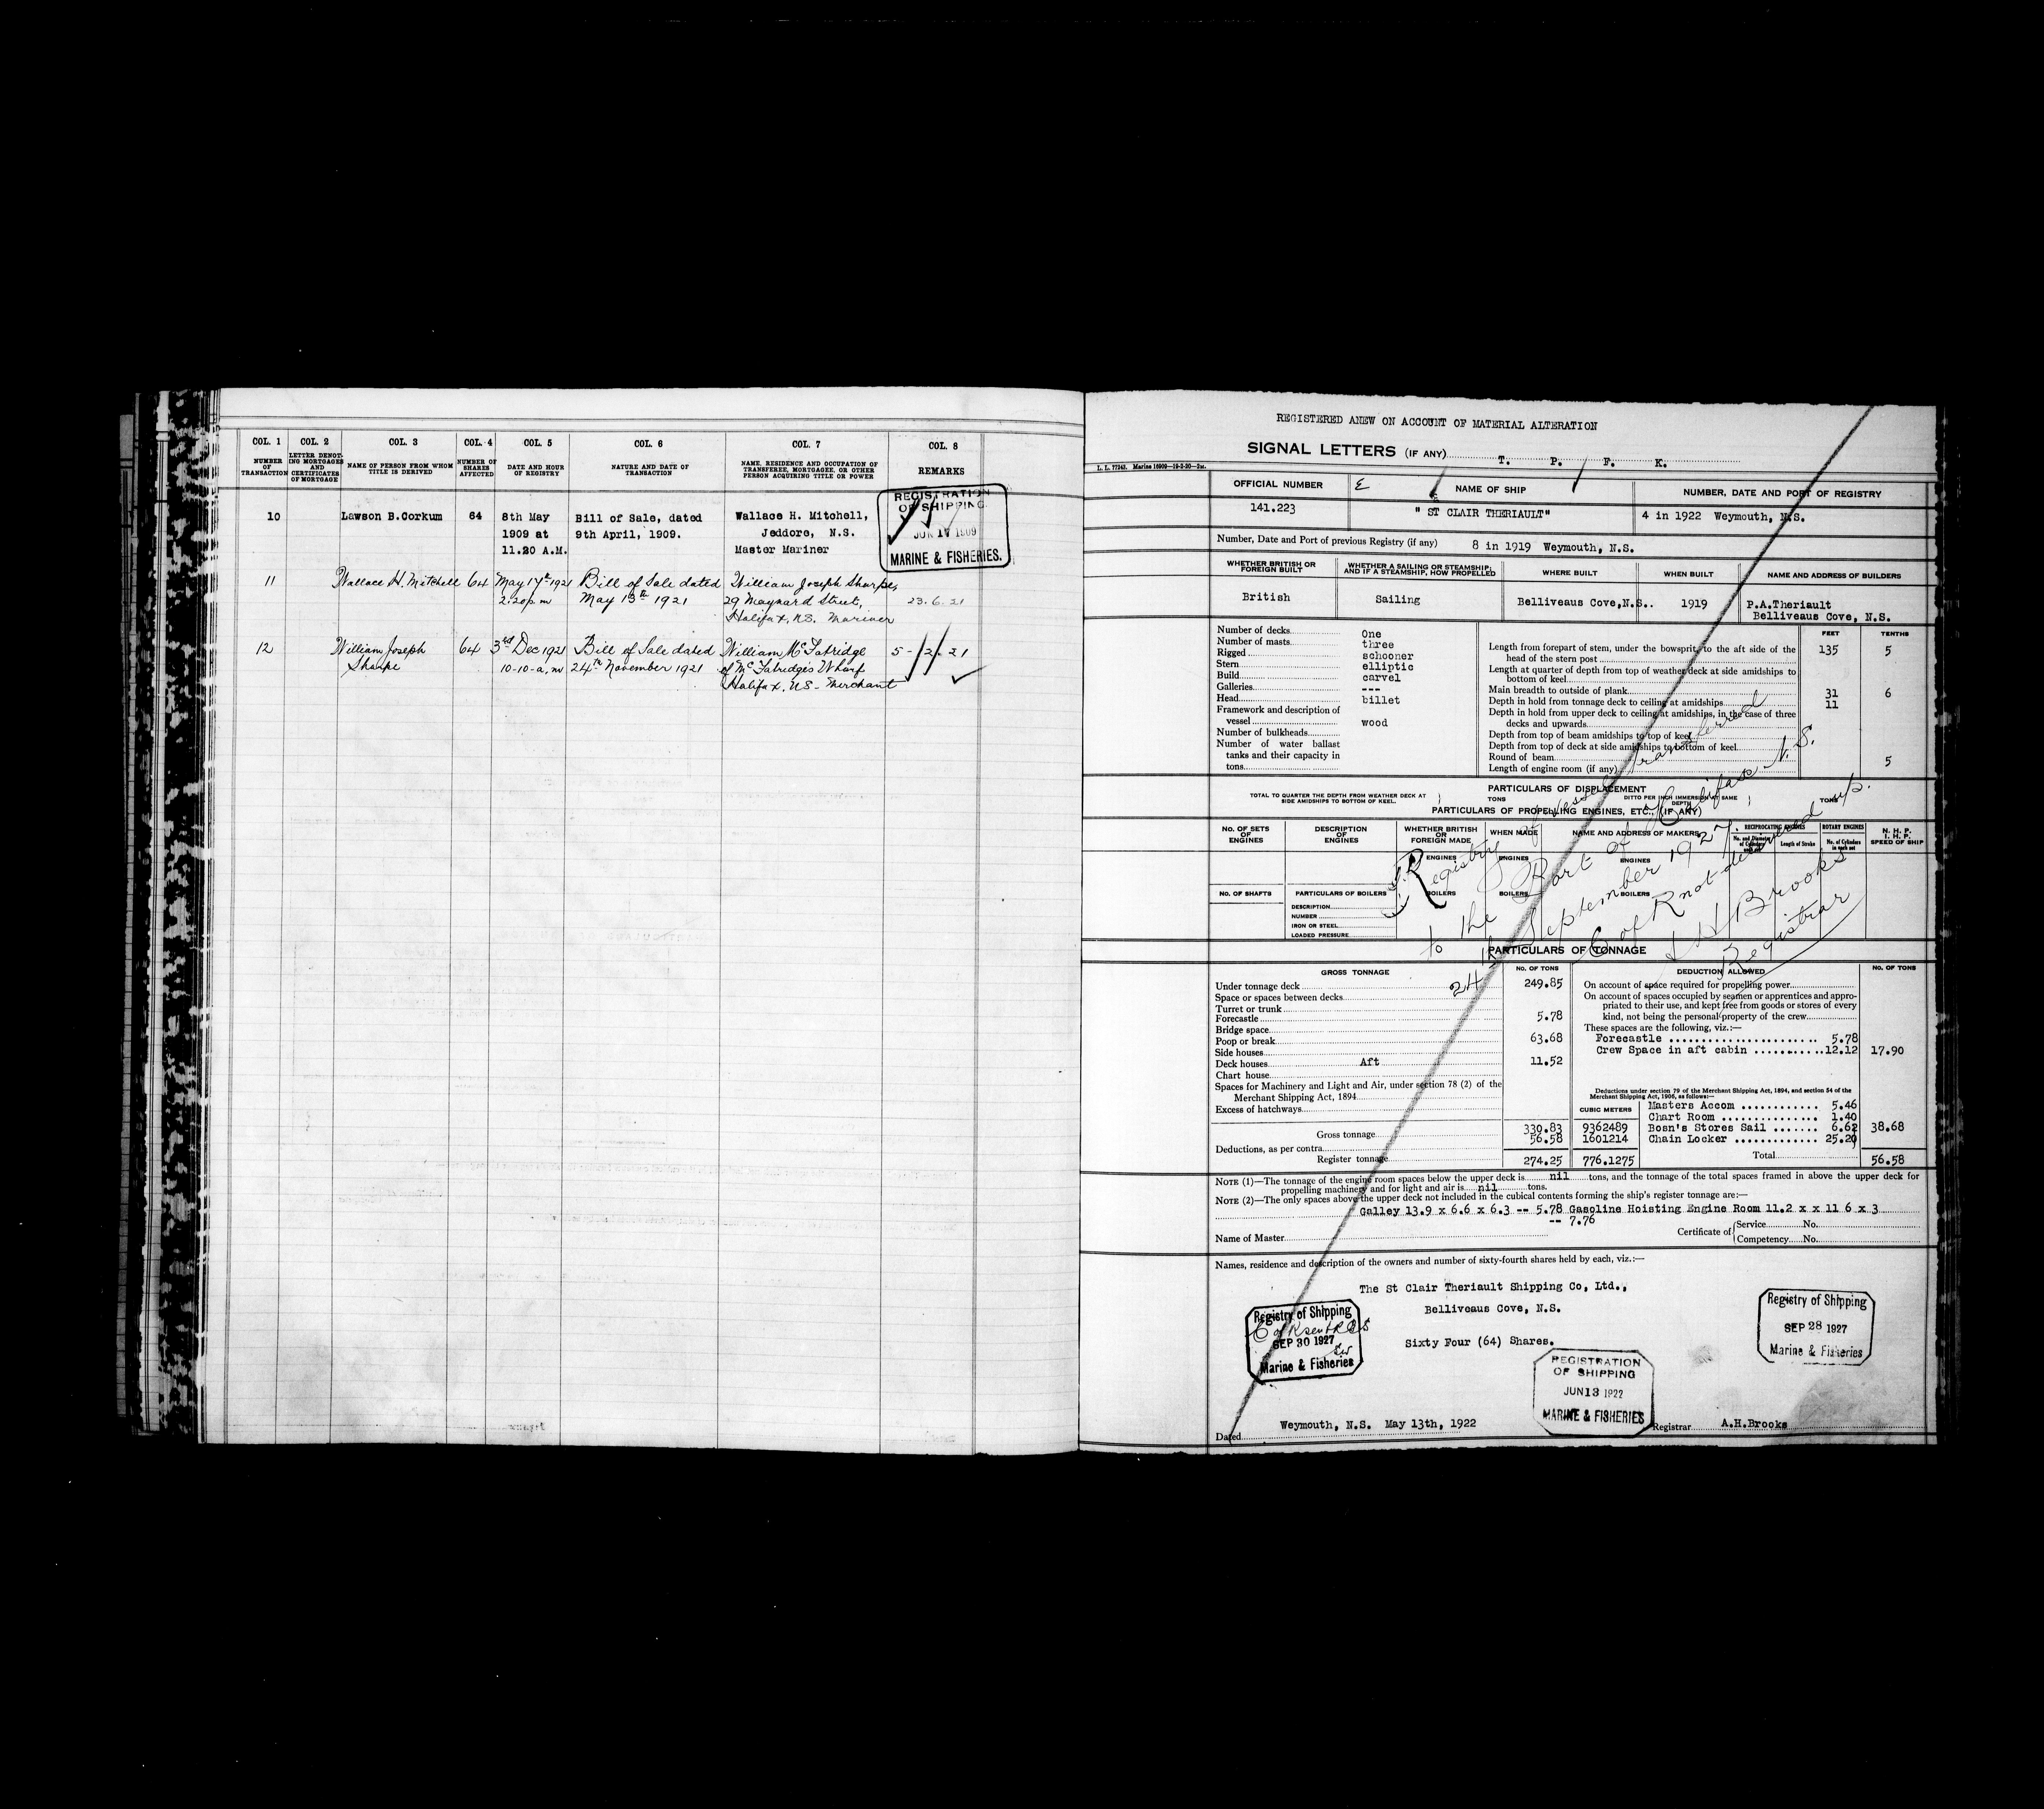 COL. 1
NUMBER OF TRANSACTION
COL. 2
LETTER DENOT-
ING MORTGAGES
AND
CERTIFICATES
OF MORTGAGE
COL. 3
NAME OF PERSON FROM WHOM
TITLE IS DERIVED
COL. 4
NUMBER OF
SHARES
AFFECTED
COL. 5
DATE AND HOUR
OF REGISTRY
COL. 6
NATURE AND DATE OF
TRANSACTION
COL. 7
NAME, RESIDENCE AND OCCUPATION OF
TRANSFEREE, MORTGAGEE, OR OTHER
PERSON ACQUIRING TITLE OR POWER
COL. 8
REMARKS
10 Lawson B.Corkum 64 8th May Bill of Sale, dated Wallace H. Mitchell,
1909 at 9th April, 1909. Jeddore, N.S.
11.20 A.M. Master Mariner
REGISTRATION
OF SHIPPING
JUN 17 1909
MARINE & FISHERIES.
11 Wallace H. Mitchell 64 May 17th 1921 Bill of Sale dated William Joseph Sharpe,
2.20 p m May 13th 1921 29 Maynard Street, 23.6.21
Halifax, N.S. Mariner
12 William Joseph 64 3rd Dec 1921 Bill of Sale dated William McFatridge 5-12.21
Sharpe 10-10-a,m 24th November 1921 of McFatridges Wharf
Halifax, N.S- Merchant
REGISTERED ANEW ON ACCOUNT OF MATERIAL ALTERATION
SIGNAL LETTERS (IF ANY) T. P. F. K.
L. L. 77243. Marine 16909—19-2-20—2M.
OFFICIAL NUMBER
NAME OF SHIP
NUMBER, DATE AND PORT OF REGISTRY
141.223
" ST CLAIR THERIAULT"
4 in 1922 Weymouth, N.S.
Number, Date and Port of previous Registry (if any) 8 in 1919 Weymouth, N.S.
WHETHER BRITISH OR
FOREIGN BUILT
WHETHER A SAILING OR STEAMSHIP;
AND IF A STEAMSHIP, HOW PROPELLED
WHERE BUILT
WHEN BUILT
NAME AND ADDRESS OF BUILDERS
British
Sailing
Belliveaus Cove,N.S..
1919
P.A.Theriault
Belliveaus Cove, N.S.
Number of decks One
Number of masts three
Rigged schooner
Stern elliptic
Build carvel
Galleries ---
Head billet
Framework and description of
vessel wood
Number of bulkheads
Number of water ballast
tanks and their capacity in
tons
FEET TENTHS
Length from forepart of stem, under the bowsprit, to the aft side of the
head of the stern post 135 5
Length at quarter of depth from top of weather deck at side amidships to
bottom of keel
Main breadth to outside of plank 31 6
Depth in hold from tonnage deck to ceiling at amidships 11
Depth in hold from upper deck to ceiling at amidships, in the case of three
decks and upwards
Depth from top of beam amidships to top of keel
Depth from top of deck at side amidships to bottom of keel
Round of beam 5
Length of engine room (if any)
PARTICULARS OF DISPLACEMENT
TOTAL TO QUARTER THE DEPTH FROM WEATHER DECK AT
SIDE AMIDSHIPS TO BOTTOM OF KEEL.
TONS
DITTO PER INCH IMMERSION AT SAME
DEPTH
TONS
PARTICULARS OF PROPELLING ENGINES, ETC., (IF ANY)
No. OF SETS
OF
ENGINES
DESCRIPTION
OF
ENGINES
WHETHER BRITISH
OR
FOREIGN MADE
WHEN MADE
NAME AND ADDRESS OF MAKERS
RECIPROCATING ENGINES
No. and Diameter
of Cylinders
in each set
Length of Stroke
ROTARY ENGINES
No. of Cylinders
in each set
N. H. P.
I. H. P.
SPEED OF SHIP
ENGINES
ENGINES
ENGINES
No. OF SHAFTS
PARTICULARS OF BOILERS
BOILERS
BOILERS
BOILERS
DESCRIPTION
NUMBER
IRON OR STEEL
LOADED PRESSURE
Registry of vessel transferred
to the Port of Halifax N.S.
24th September 1927.
C of R not delivered up.
A H Brooks
Registrar
PARTICULARS OF TONNAGE
GROSS TONNAGE
No. OF TONS
Under tonnage deck 249.85
Space or spaces between decks
Turret or trunk
Forecastle 5.78
Bridge space
Poop or break 63.68
Side houses
Deck houses Aft 11.52
Chart house
Spaces for Machinery and Light and Air, under section 78 (2) of the
Merchant Shipping Act, 1894
Excess of hatchways
CUBIC METERS
Gross tonnage 330.83 9362489
Deductions, as per contra 56.58 1601214
Register tonnage 274.25 776.1275
DEDUCTION ALLOWED
No. OF TONS
On account of space required for propelling power
On account of spaces occupied by seamen or apprentices and appro-
priated to their use, and kept free from goods or stores of every
kind, not being the personal property of the crew
These spaces are the following, viz.:—
Forecastle 5.78
Crew Space in aft cabin 12.12 17.90
Deductions under section 79 of the Merchant Shipping Act, 1894, and section 54 of the
Merchant Shipping Act, 1906, as follows:—
Masters Accom 5.46
Chart Room 1.40
Bosn's Stores Sail 6.62 38.68
Chain Locker 25.20
Total 56.58
NOTE (1)—The tonnage of the engine room spaces below the upper deck is nil tons, and the tonnage of the total spaces framed in above the upper deck for
propelling machinery and for light and air is nil tons.
NOTE (2)—The only spaces above the upper deck not included in the cubical contents forming the ship's register tonnage are:—
Galley 13.9 x 6.6 x 6.3 -- 5.78 Gasoline Hoisting Engine Room 11.2 x x 11 6 x 3
-- 7.76
Name of Master
Certificate of
Service No.
Competency No.
Names, residence and description of the owners and number of sixty-fourth shares held by each, viz.:—
The St Clair Theriault Shipping Co, Ltd.,
Belliveaus Cove, N.S.
Sixty Four (64) Shares.
Registry of Shipping
SEP 30 1927
Marine & Fisheries
Registry of Shipping
SEP 28 1927
Marine & Fisheries
REGISTRATION
OF SHIPPING
JUN 13 1922
MARINE & FISHERIES
Dated Weymouth, N.S. May 13th, 1922
Registrar A.H.Brooks